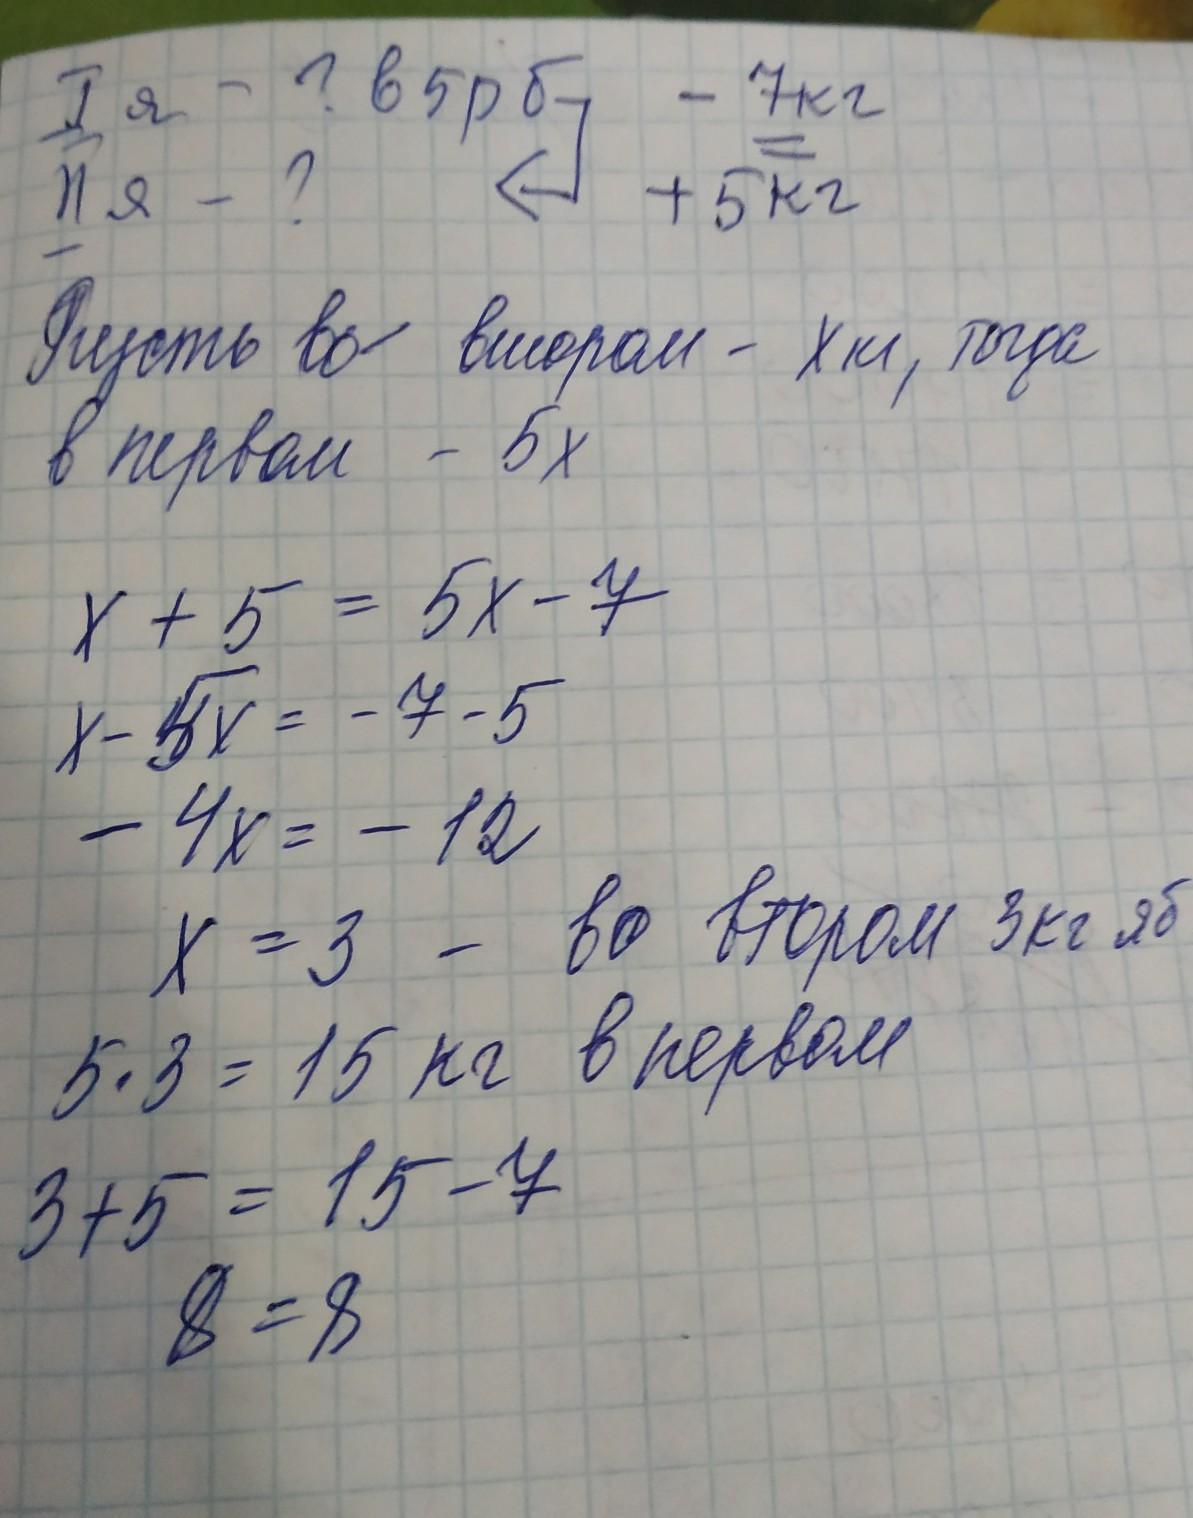 I я - ? в 5 р б - 7кг
II я - ? + 5кг
Пусть во втором - x кг, тогда
в первом - 5x
x + 5 = 5x - 7
x - 5x = - 7 - 5
- 4x = - 12
x = 3 - во втором 3кг яб
5 · 3 = 15 кг в первом
3 + 5 = 15 - 7
8 = 8